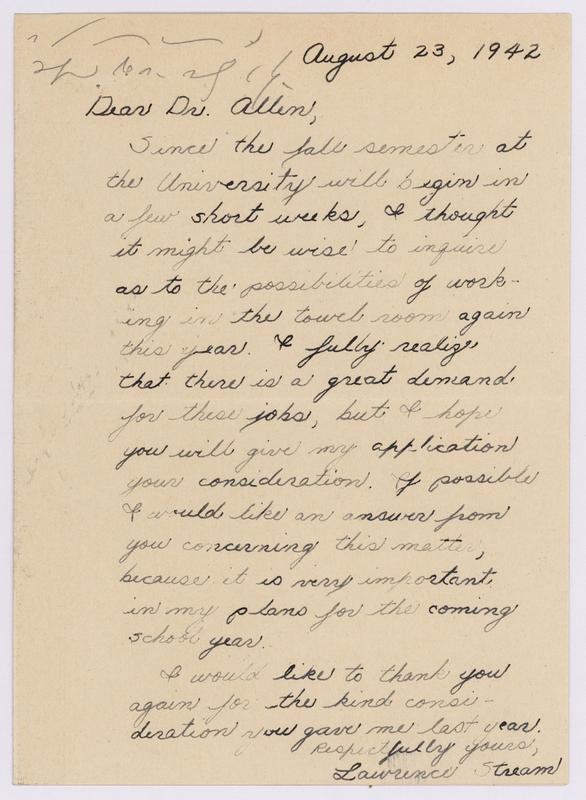 August 23, 1942
Dear Dr. Allen,
Since the fall semester at
the University will begin in
a few short weeks, I thought
it might be wise to inquire
as to the possibilities of work-
ing in the towel room again
this year. I fully realize
that there is a great demand
for these jobs, but I hope
you will give my application
your consideration. If possible
I would like an answer from
you concerning this matter,
because it is very important
in my plans for the coming
school year.
I would like to thank you
again for the kind consi-
deration you gave me last year.
Respectfully yours,
Lawrence Stream